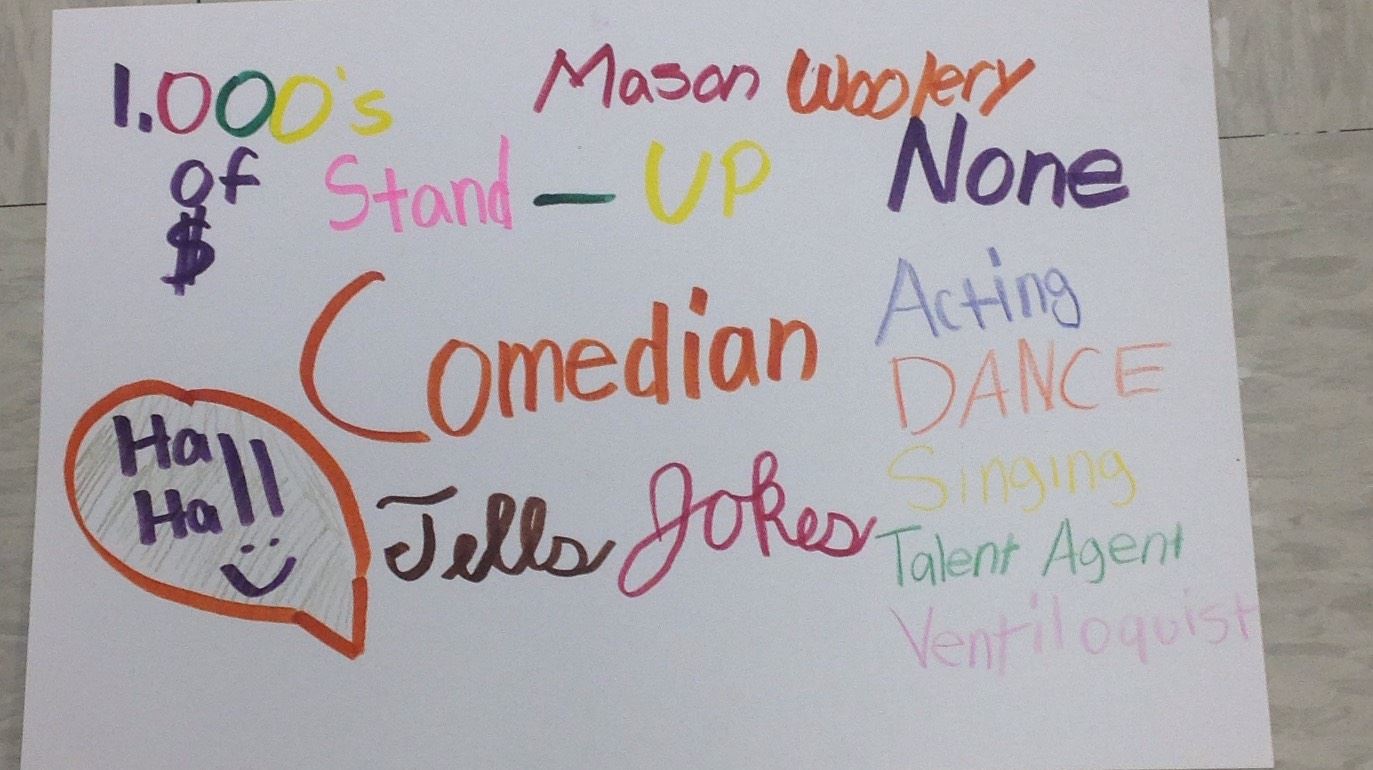 1.000's
of
$
Mason Woolery
Stand - UP
Comedian
Tells Jokes
Ha
Ha!!
None
Acting
DANCE
Singing
Talent Agent
Ventiloquist